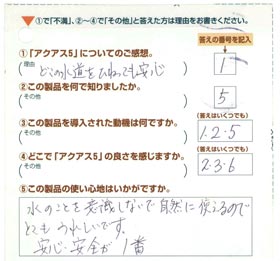 ①で「不満」、②〜④で「その他」と答えた方は理由をお書きください。
答えの番号を記入
①「アクアス5」についてのご感想。
(理由 どこの水道をひねっても安心) 1
②この製品を何で知りましたか。
(その他 ) 5
③この製品を導入された動機は何ですか。 (答えはいくつでも)
(その他 ) 1.2.5
④どこで「アクアス5」の良さを感じますか。 (答えはいくつでも)
(その他 ) 2.3.6
⑤この製品の使い心地はいかがですか。
水のことを意識しないで自然に使えるので
とてもうれしいです。
安心・安全が1番